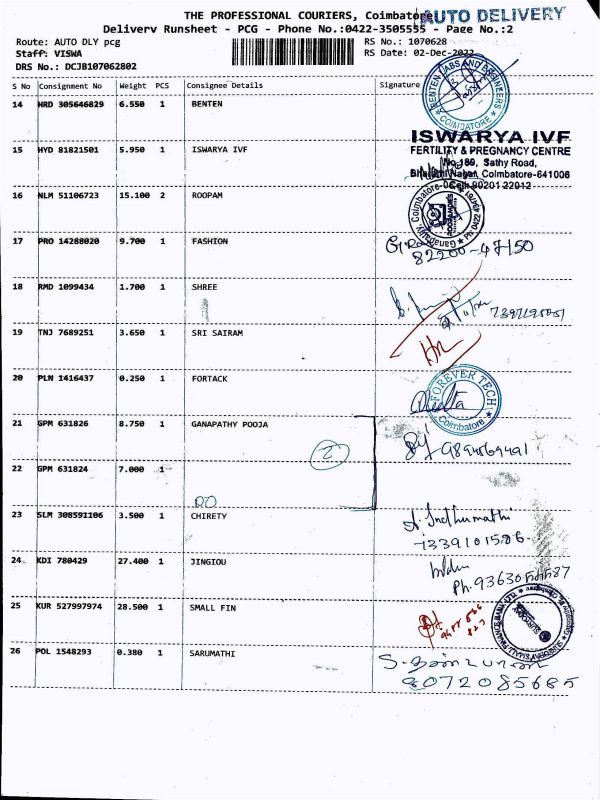 THE PROFESSIONAL COURIERS, Coimbatore
AUTO DELIVERY
Delivery Runsheet - PCG - Phone No.:0422-3505555 - Page No.:2
Route: AUTO DLY pcg RS No.: 1070628
Staff: VISWA RS Date: 02-Dec-2022
DRS No.: DCJB107062802
S No Consignment No Weight PCS Consignee Details Signature
14 NRD 305646829 6.550 1 BENTEN
BENTEN LABS AND ENGINEERS
COIMBATORE
ISWARYA IVF
FERTILITY & PREGNANCY CENTRE
15 HYD 81821501 5.950 1 ISWARYA IVF
No.180, Sathy Road,
Nagar, Coimbatore-641006
Cell: 90201 22012
16 NLM 51106723 15.100 2 ROOPAM
Ganapathy Coimbatore
17 PRO 14288020 9.700 1 FASHION
82200-47150
18 RMD 1099434 1.700 1 SHREE
19 TNJ 7689251 3.650 1 SRI SAIRAM
20 PLN 1416437 0.250 1 FORTACK
FOREVER TECH
Coimbatore
21 GPM 631826 8.750 1 GANAPATHY POOJA
2
9894869491
22 GPM 631824 7.000 1
DO
23 SLM 308591106 3.500 1 CHIRETY
Indhumathi
24 KDI 780429 27.400 1 JINGIOU
25 KUR 527997974 28.500 1 SMALL FIN
26 POL 1548293 0.380 1 SARUMATHI
9072085685